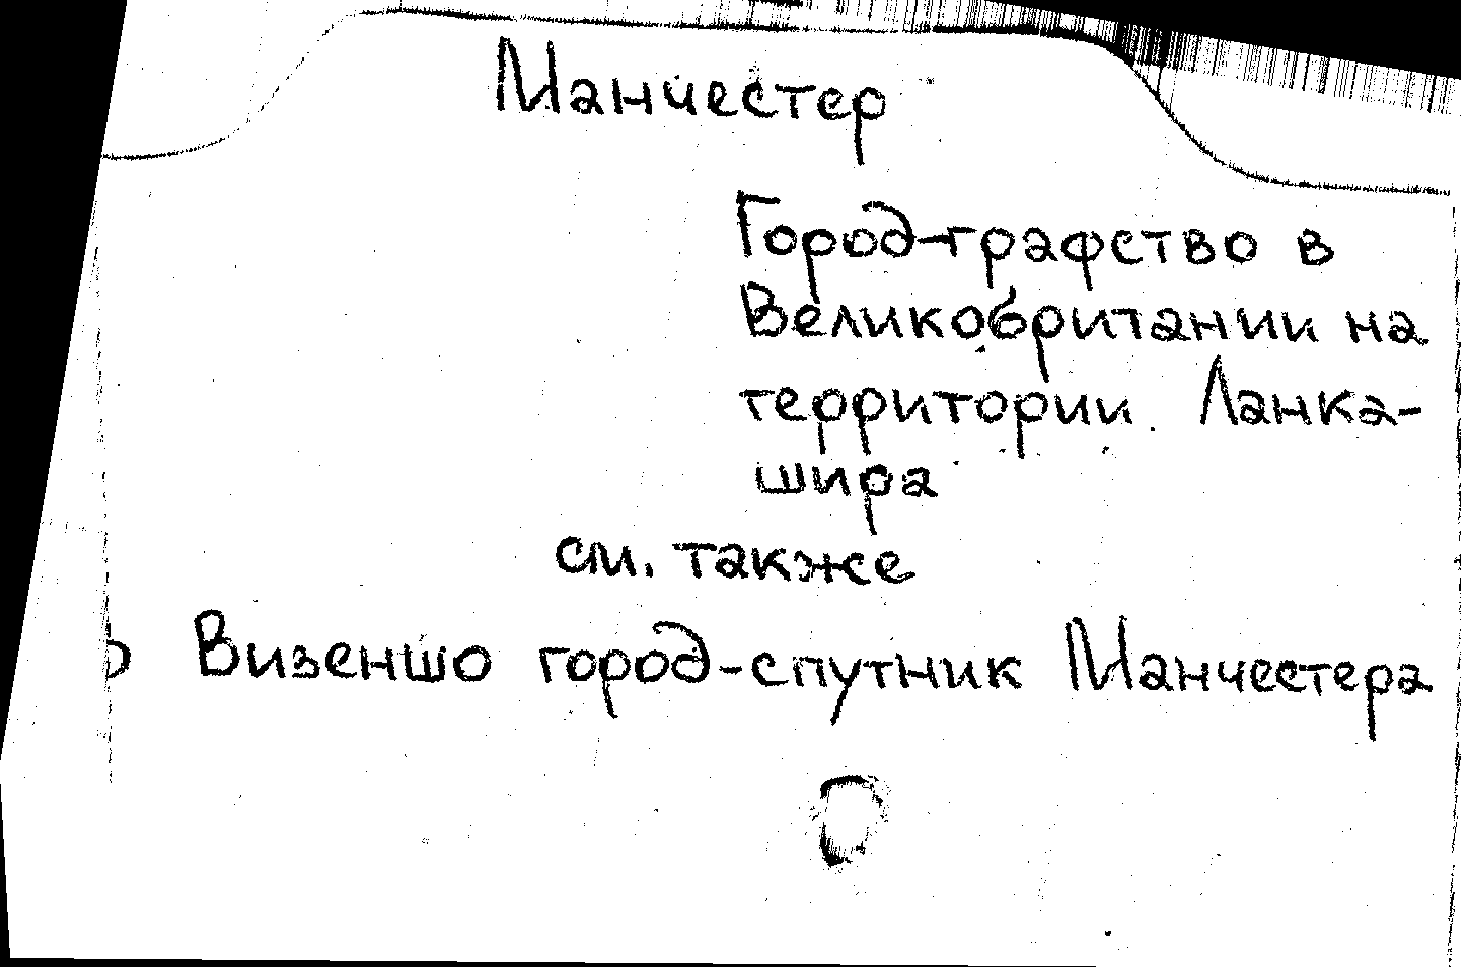 Манчестер
Город-графство в
Великобритании на
территории Ланка-
шира
см. также
Визеншо город-спутник Манчестера